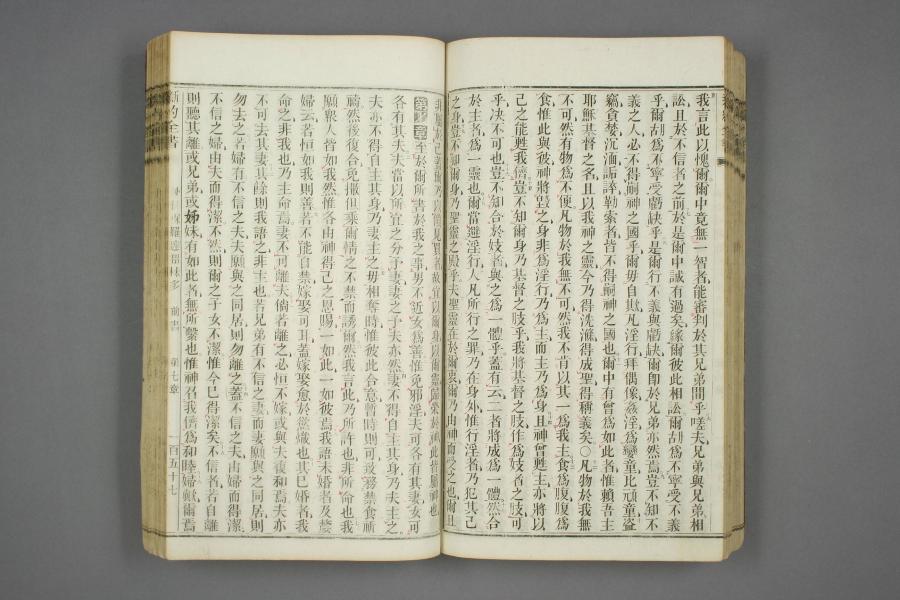 我言此以愧爾爾中竟無一智者能審判於其兄弟間乎嗟夫兄弟與兄弟相
訟且於不信者之前於是爾中誠有過矣緣爾彼此相訟爾胡爲不寧受不義
乎爾胡爲不寧受虧缺乎是爾行不義與虧缺爾即於兄弟亦然焉豈不知不
義之人必不得嗣神之國乎爾毋自欺凡淫行拜偶像姦淫爲孌童比頑童盜
竊貪婪沉湎詬誶勒索者皆不得嗣神之國也爾中有曾爲如此者惟賴吾主
耶穌基督之名且以我神之靈今乃得洗滌得成聖得稱義矣○凡物於我無
不可然有物爲不便凡物於我無不可然我不肯以其一爲我主食爲腹腹爲
食惟此與彼神將毀之身非爲淫行乃爲主而主乃爲身且神曾甦主亦將以
己之能甦我儕豈不知爾身乃基督之肢乎我將基督之肢作爲妓者之肢可
乎决不可也豈不知合於妓者與之爲一體乎蓋有云二者將成爲一體然合
於主者爲一靈也爾當避淫行人凡所行之罪乃在身外惟行淫者乃犯其己
之身豈不知爾身乃聖靈之殿乎夫聖靈在於爾衷爾乃由神而受之也爾且
至於爾所書於我之事男不近女爲善惟免邪淫夫可各有其妻可
各有其夫夫當以所宜之分予妻妻之予夫亦然妻不得自主其身乃夫主之
夫亦不得自主其身乃妻主之毋相奪時惟彼此合意暫時則可致務禁食祈
禱然後復合免撒但乘爾情之不禁而誘爾然我言此乃所許也非所命也我
願衆人皆如我然惟各由神得己之恩賜一如此一如彼焉我語未婚者及嫠
婦云若恒如我則善若不能自禁嫁娶可耳蓋嫁娶愈於慾熾也其已婚者我
命之非我也乃主命焉妻不可離夫倘若離之必恒不嫁或與夫復和焉夫亦
不可去其妻其餘則我語之非主也若兄弟有不信之妻而妻願與之同居則
勿去之若婦有不信之夫夫願與之同居則勿離之蓋不信之夫由婦而得潔
不信之婦由夫而得潔不然則爾之子女不潔惟今已得潔矣不信者若自離
則聽其離或兄弟或姊妹有如此者無所繫也惟神召我儕爲和睦婦歟爾焉
新約全書 前書 第七章 一百五十七